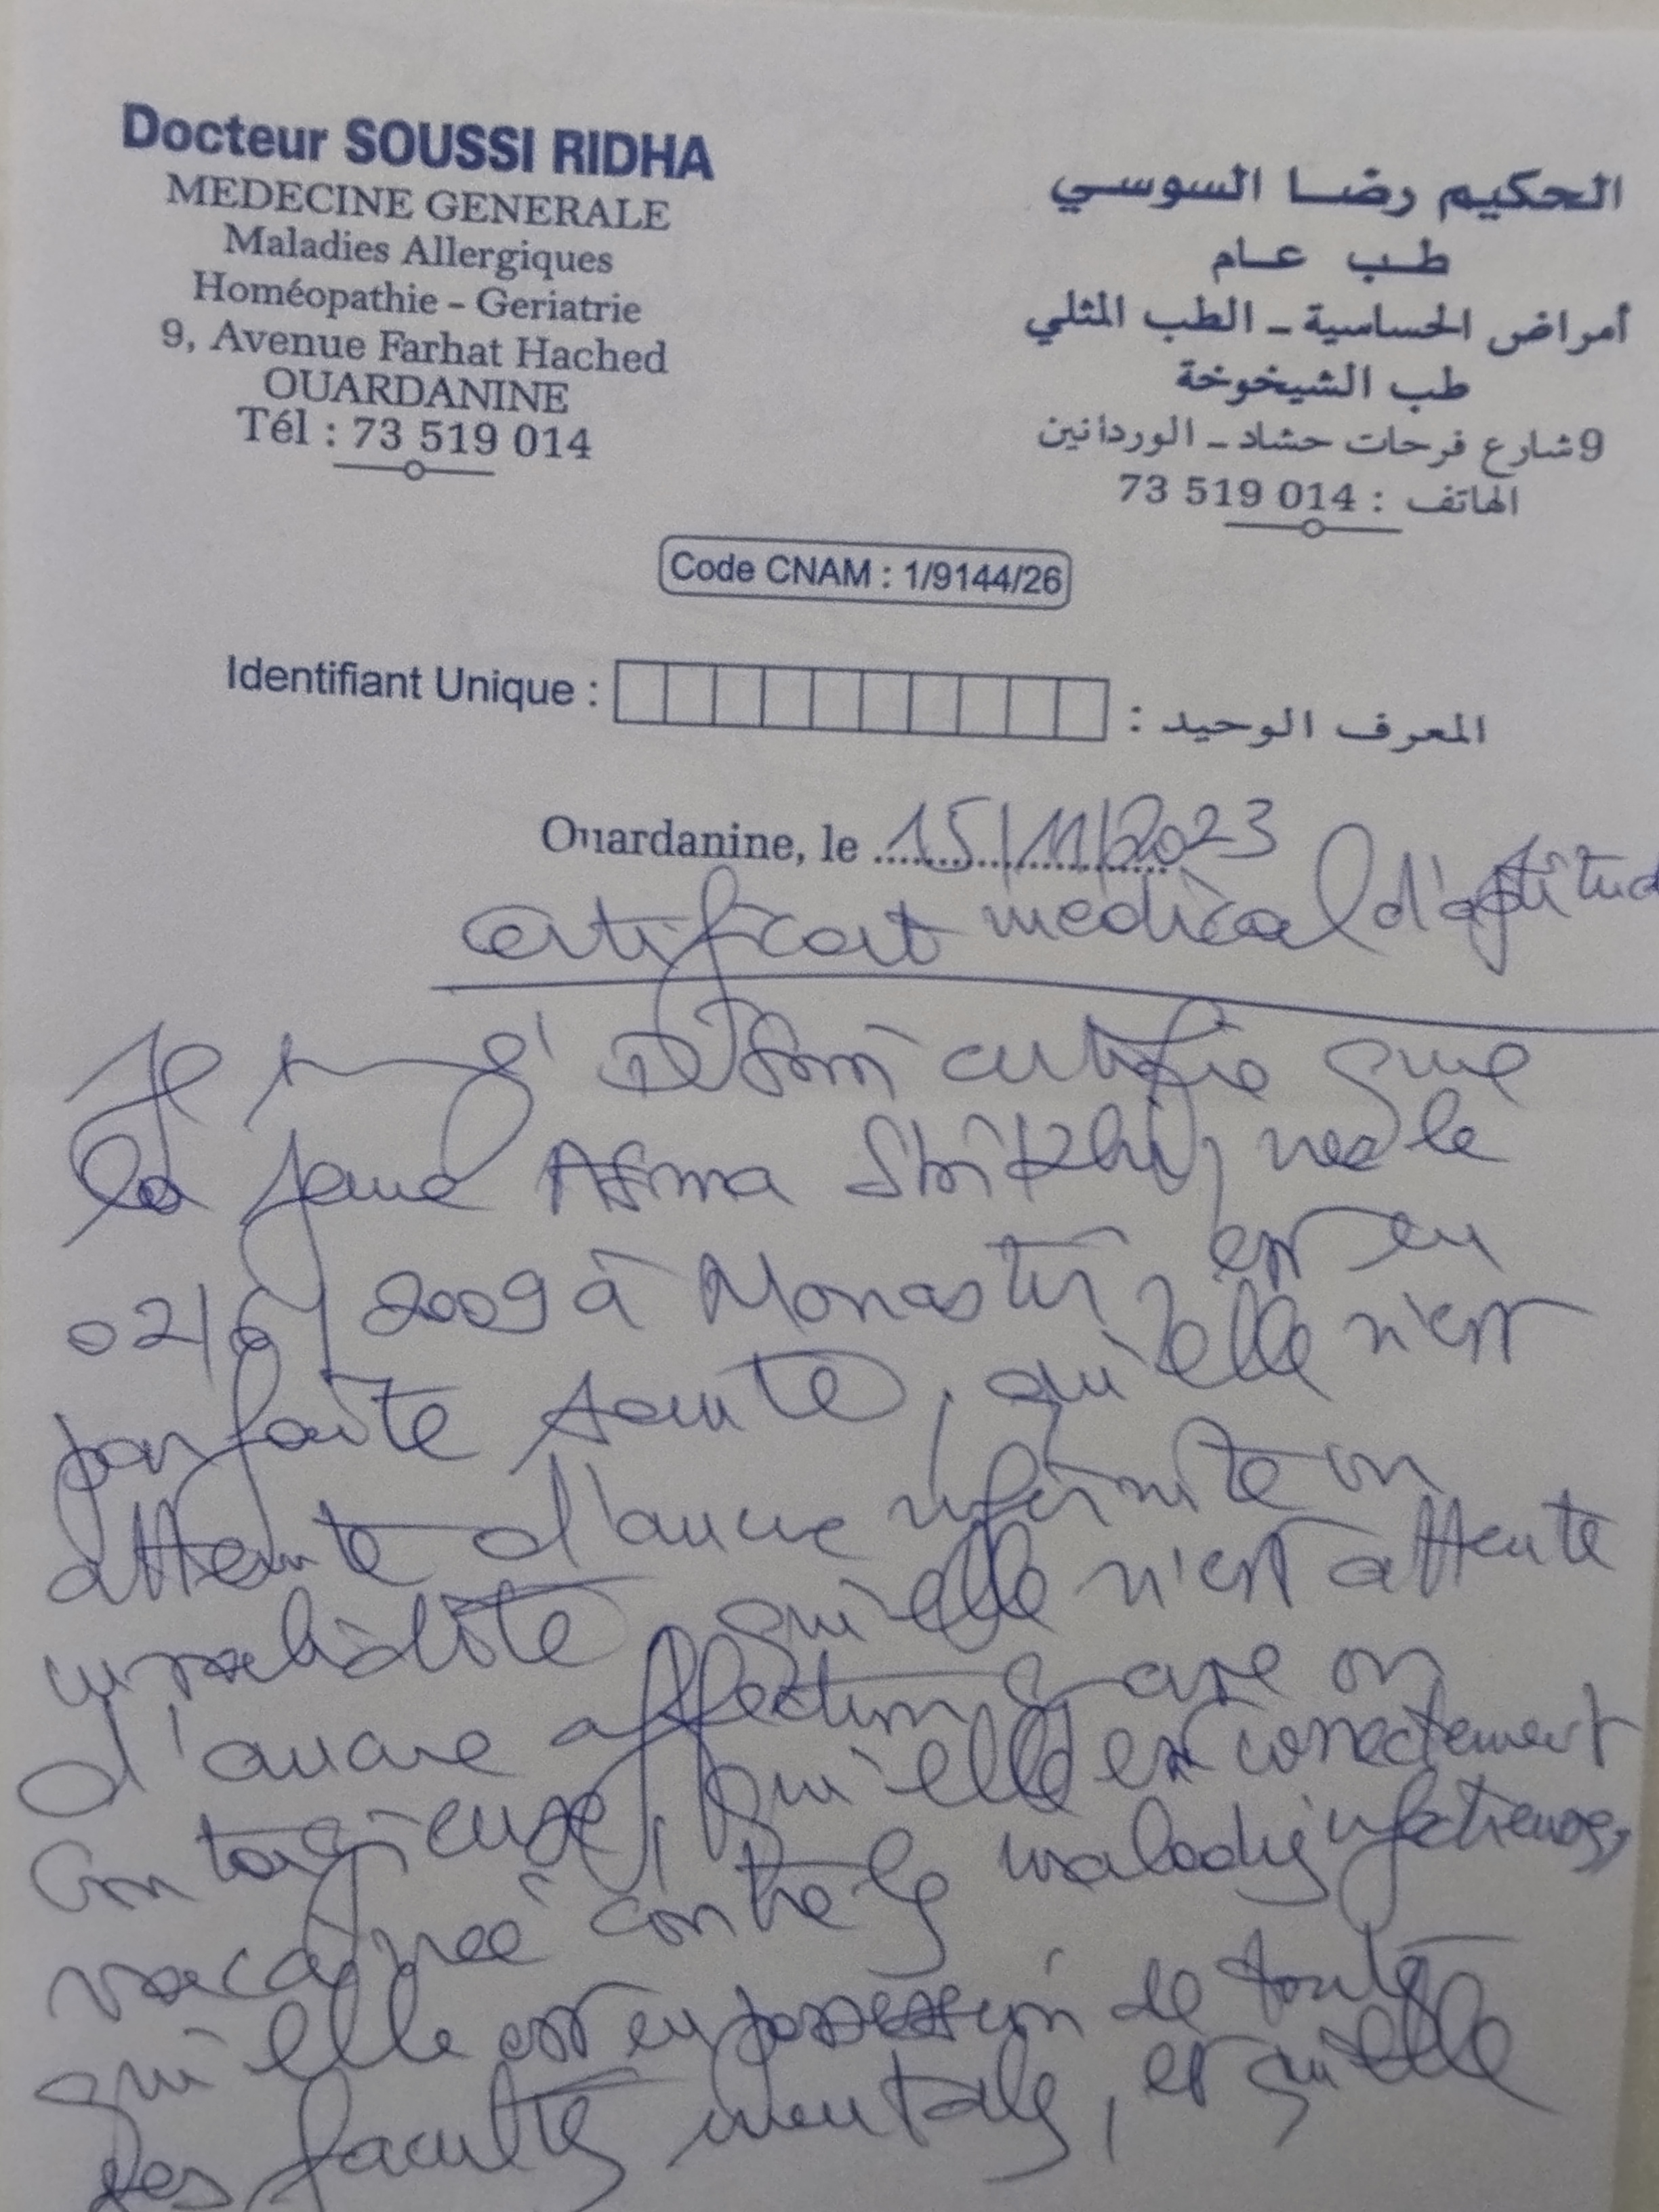 Docteur SOUSSI RIDHA
MEDECINE GENERALE
Maladies Allergiques
Homéopathie - Geriatrie
9, Avenue Farhat Hached
OUARDANINE
Tél : 73 519 014
الحكيم رضا السوسي
طب عام
أمراض الحساسية - الطب المثلي
طب الشيخوخة
9 شارع فرحات حشاد - الوردانين
الهاتف : 73 519 014
Code CNAM : 1/9144/26
Identifiant Unique : المعرف الوحيد :
Ouardanine, le 15/11/2023
certificat medical d'aptitud
Je certifie que
la jeune Asma née le
02/6/2009 à Monastir, est en
parfaite santé, qu'elle n'est
atteinte d'aucune infirmité ou
invalidité qu'elle n'est atteinte
d'aucune affection grave ou
contagieuse, qu'elle est correctement
vaccinée contre les maladies infectieuses,
qu'elle est en possession de toutes
ses facultés mentales, et qu'elle